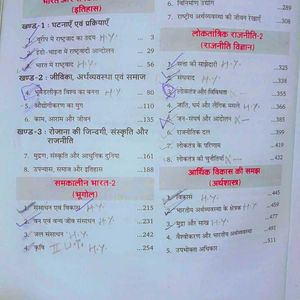 भारत और समकालीन
(इतिहास)
खण्ड-1 : घटनाएँ एवं प्रक्रियाएँ
1. यूरोप में राष्ट्रवाद का उदय H.Y.
2. इंडो-चाइना में राष्ट्रवादी आन्दोलन ...29
3. भारत में राष्ट्रवाद H.Y. ...56
खण्ड-2 : जीविका, अर्थव्यवस्था एवं समाज
4. भूमंडलीकृत विश्व का बनना H.Y. ...80
5. औद्योगीकरण का युग ...110
6. काम, आराम और जीवन ...135
खण्ड-3 : रोजाना की जिन्दगी, संस्कृति और
राजनीति
7. मुद्रण, संस्कृति और आधुनिक दुनिया ...161
8. उपन्यास, समाज और इतिहास ...188
समकालीन भारत-2
(भूगोल)
1. संसाधन एवं विकास H.Y. ...215
2. वन एवं वन्य जीव संसाधन H.Y. ...231
3. जल संसाधन H.Y. ...242
4. कृषि H.Y. ...254
6. विनिर्माण उद्योग ...289
7. राष्ट्रीय अर्थव्यवस्था की जीवन रेखाएँ ...308
लोकतांत्रिक राजनीति-2
(राजनीति विज्ञान)
1. सत्ता की साझेदारी H.Y. ...325
2. संघवाद H.Y. ...338
3. लोकतंत्र और विविधता ...355
4. जाति, धर्म और लैंगिक मसले H.Y. ...366
5. जन-संघर्ष और आंदोलन ...385
6. राजनीतिक दल ...399
7. लोकतंत्र के परिणाम ...419
8. लोकतंत्र की चुनौतियाँ ...432
आर्थिक विकास की समझ
(अर्थशास्त्र)
1. विकास H.Y. ...445
2. भारतीय अर्थव्यवस्था के क्षेत्रक H.Y. ...459
3. मुद्रा और साख H.Y. ...477
4. वैश्वीकरण और भारतीय अर्थव्यवस्था
5. उपभोक्ता अधिकार ...511